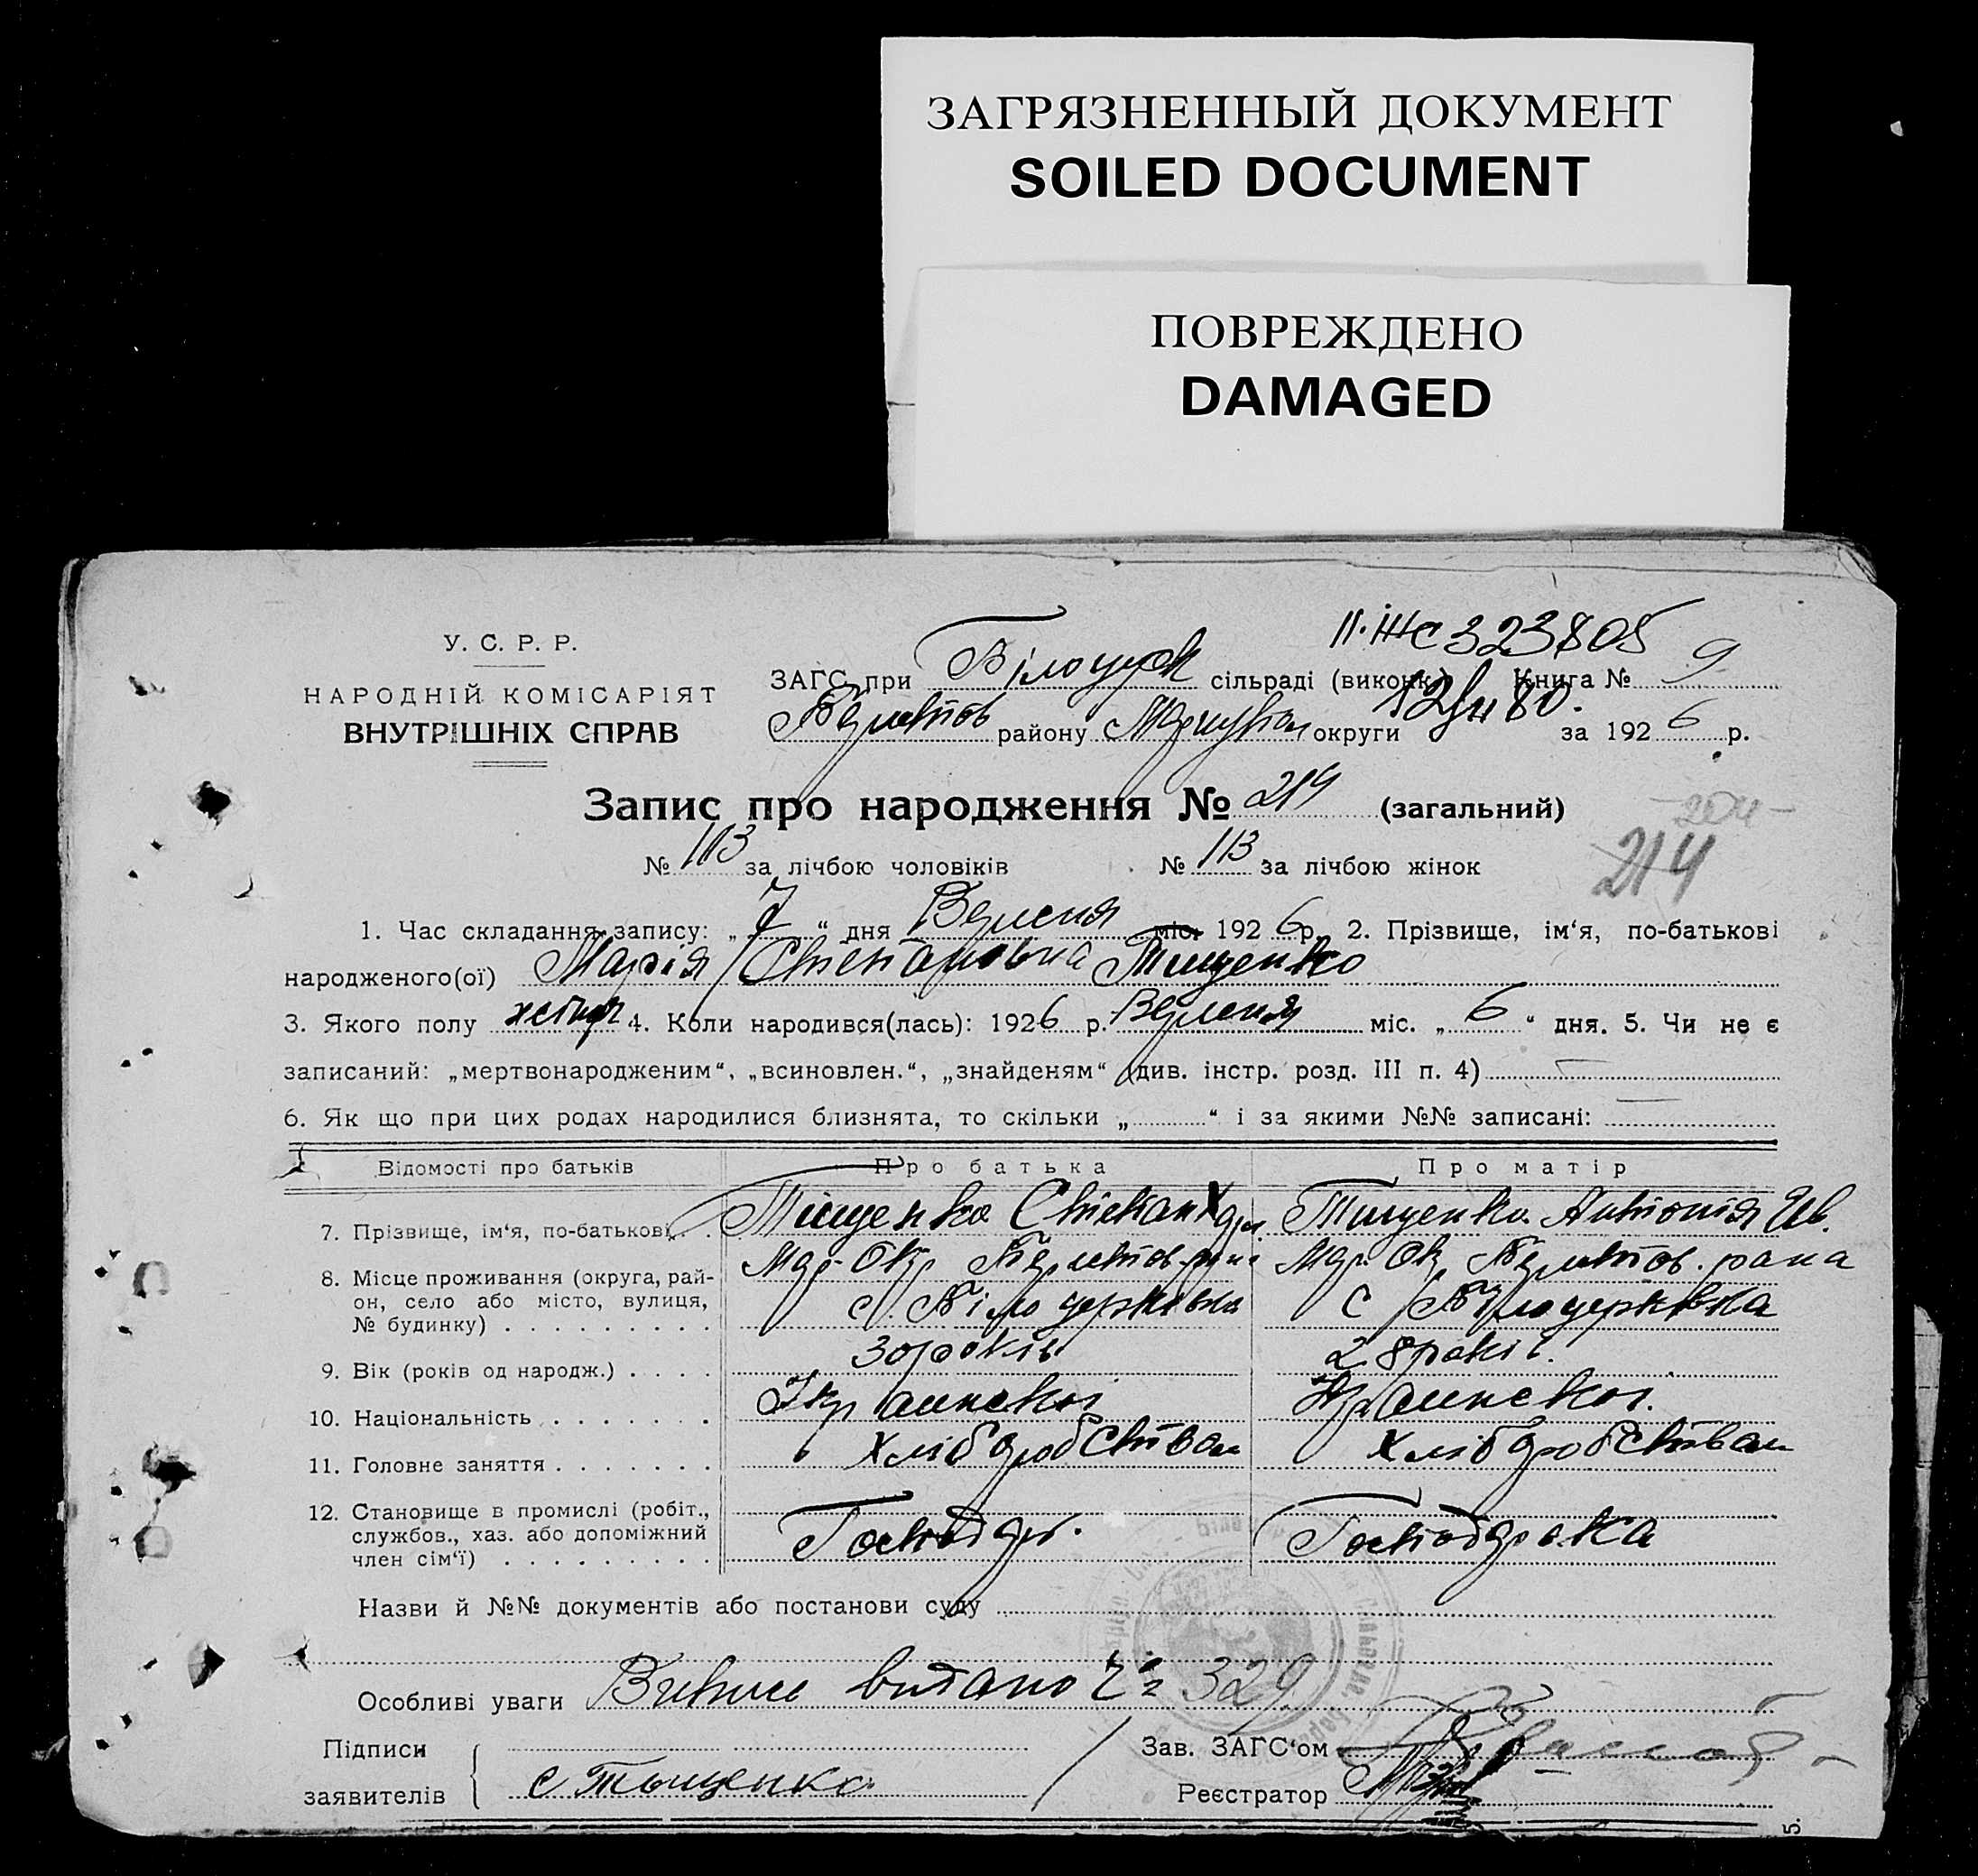 ЗАГРЯЗНЕННЫЙ ДОКУМЕНТ
SOILED DOCUMENT
ПОВРЕЖДЕНО
DAMAGED
У. С. Р. Р.
НАРОДНІЙ КОМІСАРІЯТ
ВНУТРІШНІХ СПРАВ
II-ЖС 323805
ЗАГС при Білоцерк сільраді (виконк) Книга № 9
12/II 80.
району Маріупол округи за 1926 р.
Запис про народження № 214 (загальний)
204
214
№ 113 за лічбою чоловіків № 113 за лічбою жінок
1. Час складання запису: „ 7 “ дня Вересня міс. 1926 р. 2. Прізвище, ім‘я, по-батькові
народженого(ої) Марія Степановна Тищенко
3. Якого полу 4. Коли народився(лась): 1926 р. Вересня міс. „ 6 “ дня. 5. Чи не є
записаний: „мертвонародженим“, „всиновлен.“, „знайденям“ (див. інстр. розд. III п. 4)
6. Як що при цих родах народилися близнята, то скільки „ “ і за якими №№ записані:
Відомості про батьків Про батька Про матір
7. Прізвище, ім‘я, по-батькові . . Тищенко Степан Тищенко Антонія Ів.
8. Місце проживання (округа, рай-
он, село або місто, вулиця,
№ будинку) . . . . . . . . .
Мар. Окр с. Білоцерківка
Мар. Ок с Білоцерківка
9. Вік (років од народж.) . . . . 30 років 28 років.
10. Національність . . . . . . . Українскоі Украинскоі.
11. Головне заняття . . . . . . . Хліборобством Хліборобством
12. Становище в промислі (робіт.,
службов., хаз. або допоміжний
член сім‘ї) . . . . . . . . .
Господар. Господарка
Назви й №№ документів або постанови суду
Особливі уваги Випис видано № 329
Підписи
заявителів
С Тыщенко
Зав. ЗАГС‘ом
Реєстратор
5.